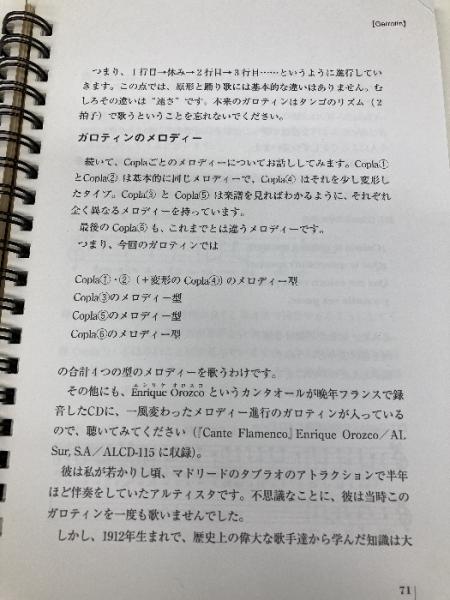 【Garrotin】
つまり、1行目→休み→2行目→3行目……というように進行してい
きます。この点では、原形と踊り歌には基本的な違いはありません。む
しろその違いは“速さ”です。本来のガロティンはタンゴのリズム（2
拍子）で歌うということを忘れないでください。
ガロティンのメロディー
続いて、Coplaごとのメロディーについてお話ししてみます。Copla①
とCopla② は基本的に同じメロディーで、Copla④ はそれを少し変形し
たタイプ。Copla③ と Copla⑤ は楽譜を見ればわかるように、それぞれ
全く異なるメロディーを持っています。
最後の Copla⑥ も、これまでとは違うメロディーです。
つまり、今回のガロティンでは
Copla①・②（＋変形の Copla④）のメロディー型
Copla③のメロディー型
Copla⑤のメロディー型
Copla⑥のメロディー型
の合計4つの型のメロディーを歌うわけです。
エンリケ オロスコ
その他にも、Enrique Orozco というカンタオールが晩年フランスで録
音したCDに、一風変わったメロディー進行のガロティンが入っている
ので、聴いてみてください（『Cante Flamenco』Enrique Orozco／AL
Sur, S.A／ALCD-115 に収録）。
彼は私が若かりし頃、マドリードのタブラオのアトラクションで半年
ほど伴奏をしていたアルティスタです。不思議なことに、彼は当時この
ガロティンを一度も歌いませんでした。
しかし、1912年生まれで、歴史上の偉大な歌手達から学んだ知識は大
71